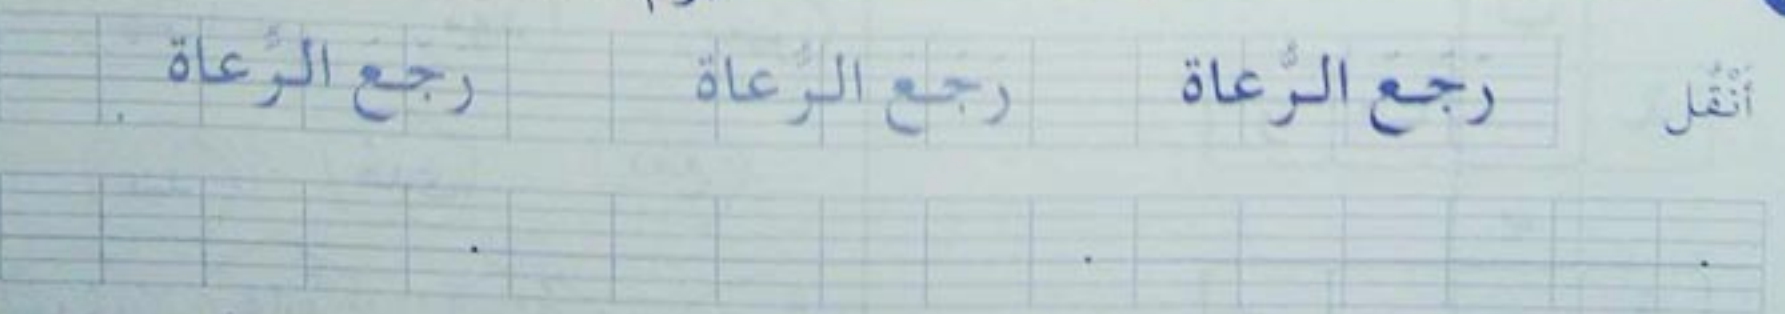 أَنْقُل رَجَعَ الرُّعاة رَجَعَ الرُّعاة رَجَعَ الرُّعاة